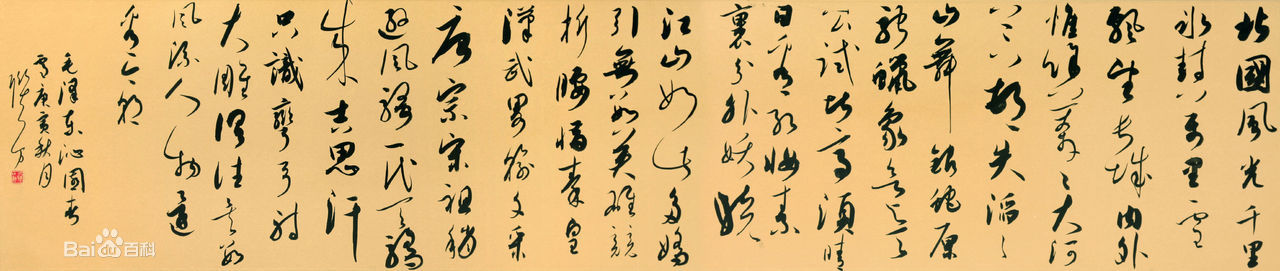 北國風光千里
冰封万里雪
飄望長城內外
惟餘莽々大河
上下頓失滔々
山舞銀蛇原
馳蠟象欲与天
公試比高須晴
日看紅妝素
裹分外妖嬈
江山如此多嬌
引無數英雄競
折腰惜秦皇
漢武略輸文采
唐宗宋祖稍
遜風騷一代天驕
成吉思汗
只識彎弓射
大雕俱往矣數
風流人物還
看今朝
毛澤東沁園春
雪庚寅秋月
Bai百科